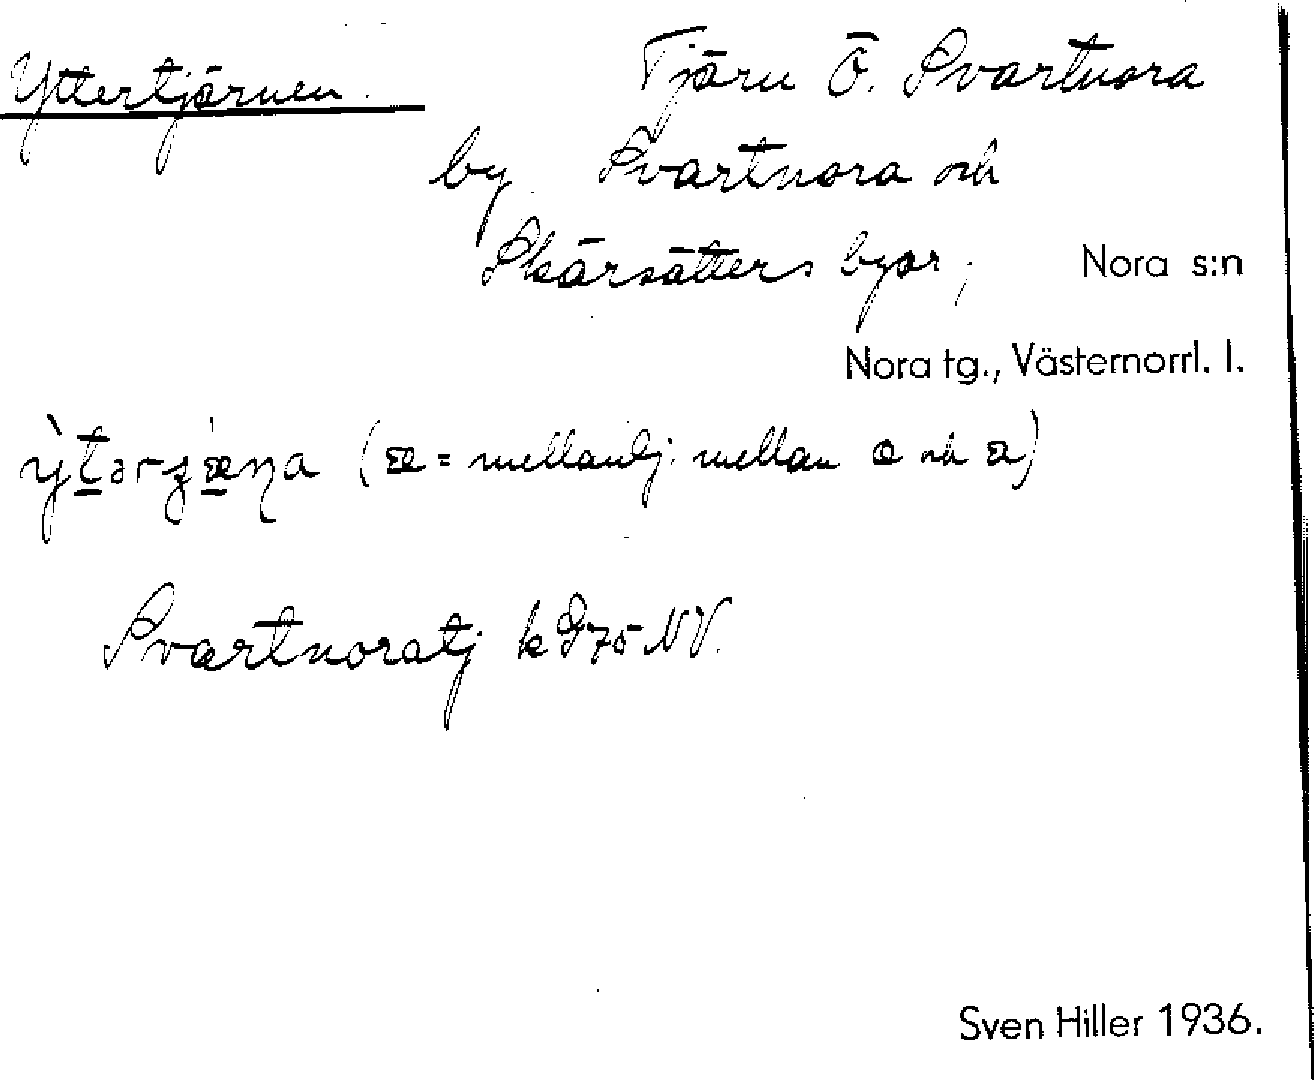 Yttertjärnen.
Tjärn Ö. Svartnora
by. Svartnora och
Skärsätters byar,
Nora s:n
Nora tg., Västernorrl. l.
(æ = mellanlj. mellan och
Svartnoratj k NV.
Sven Hiller 1936.